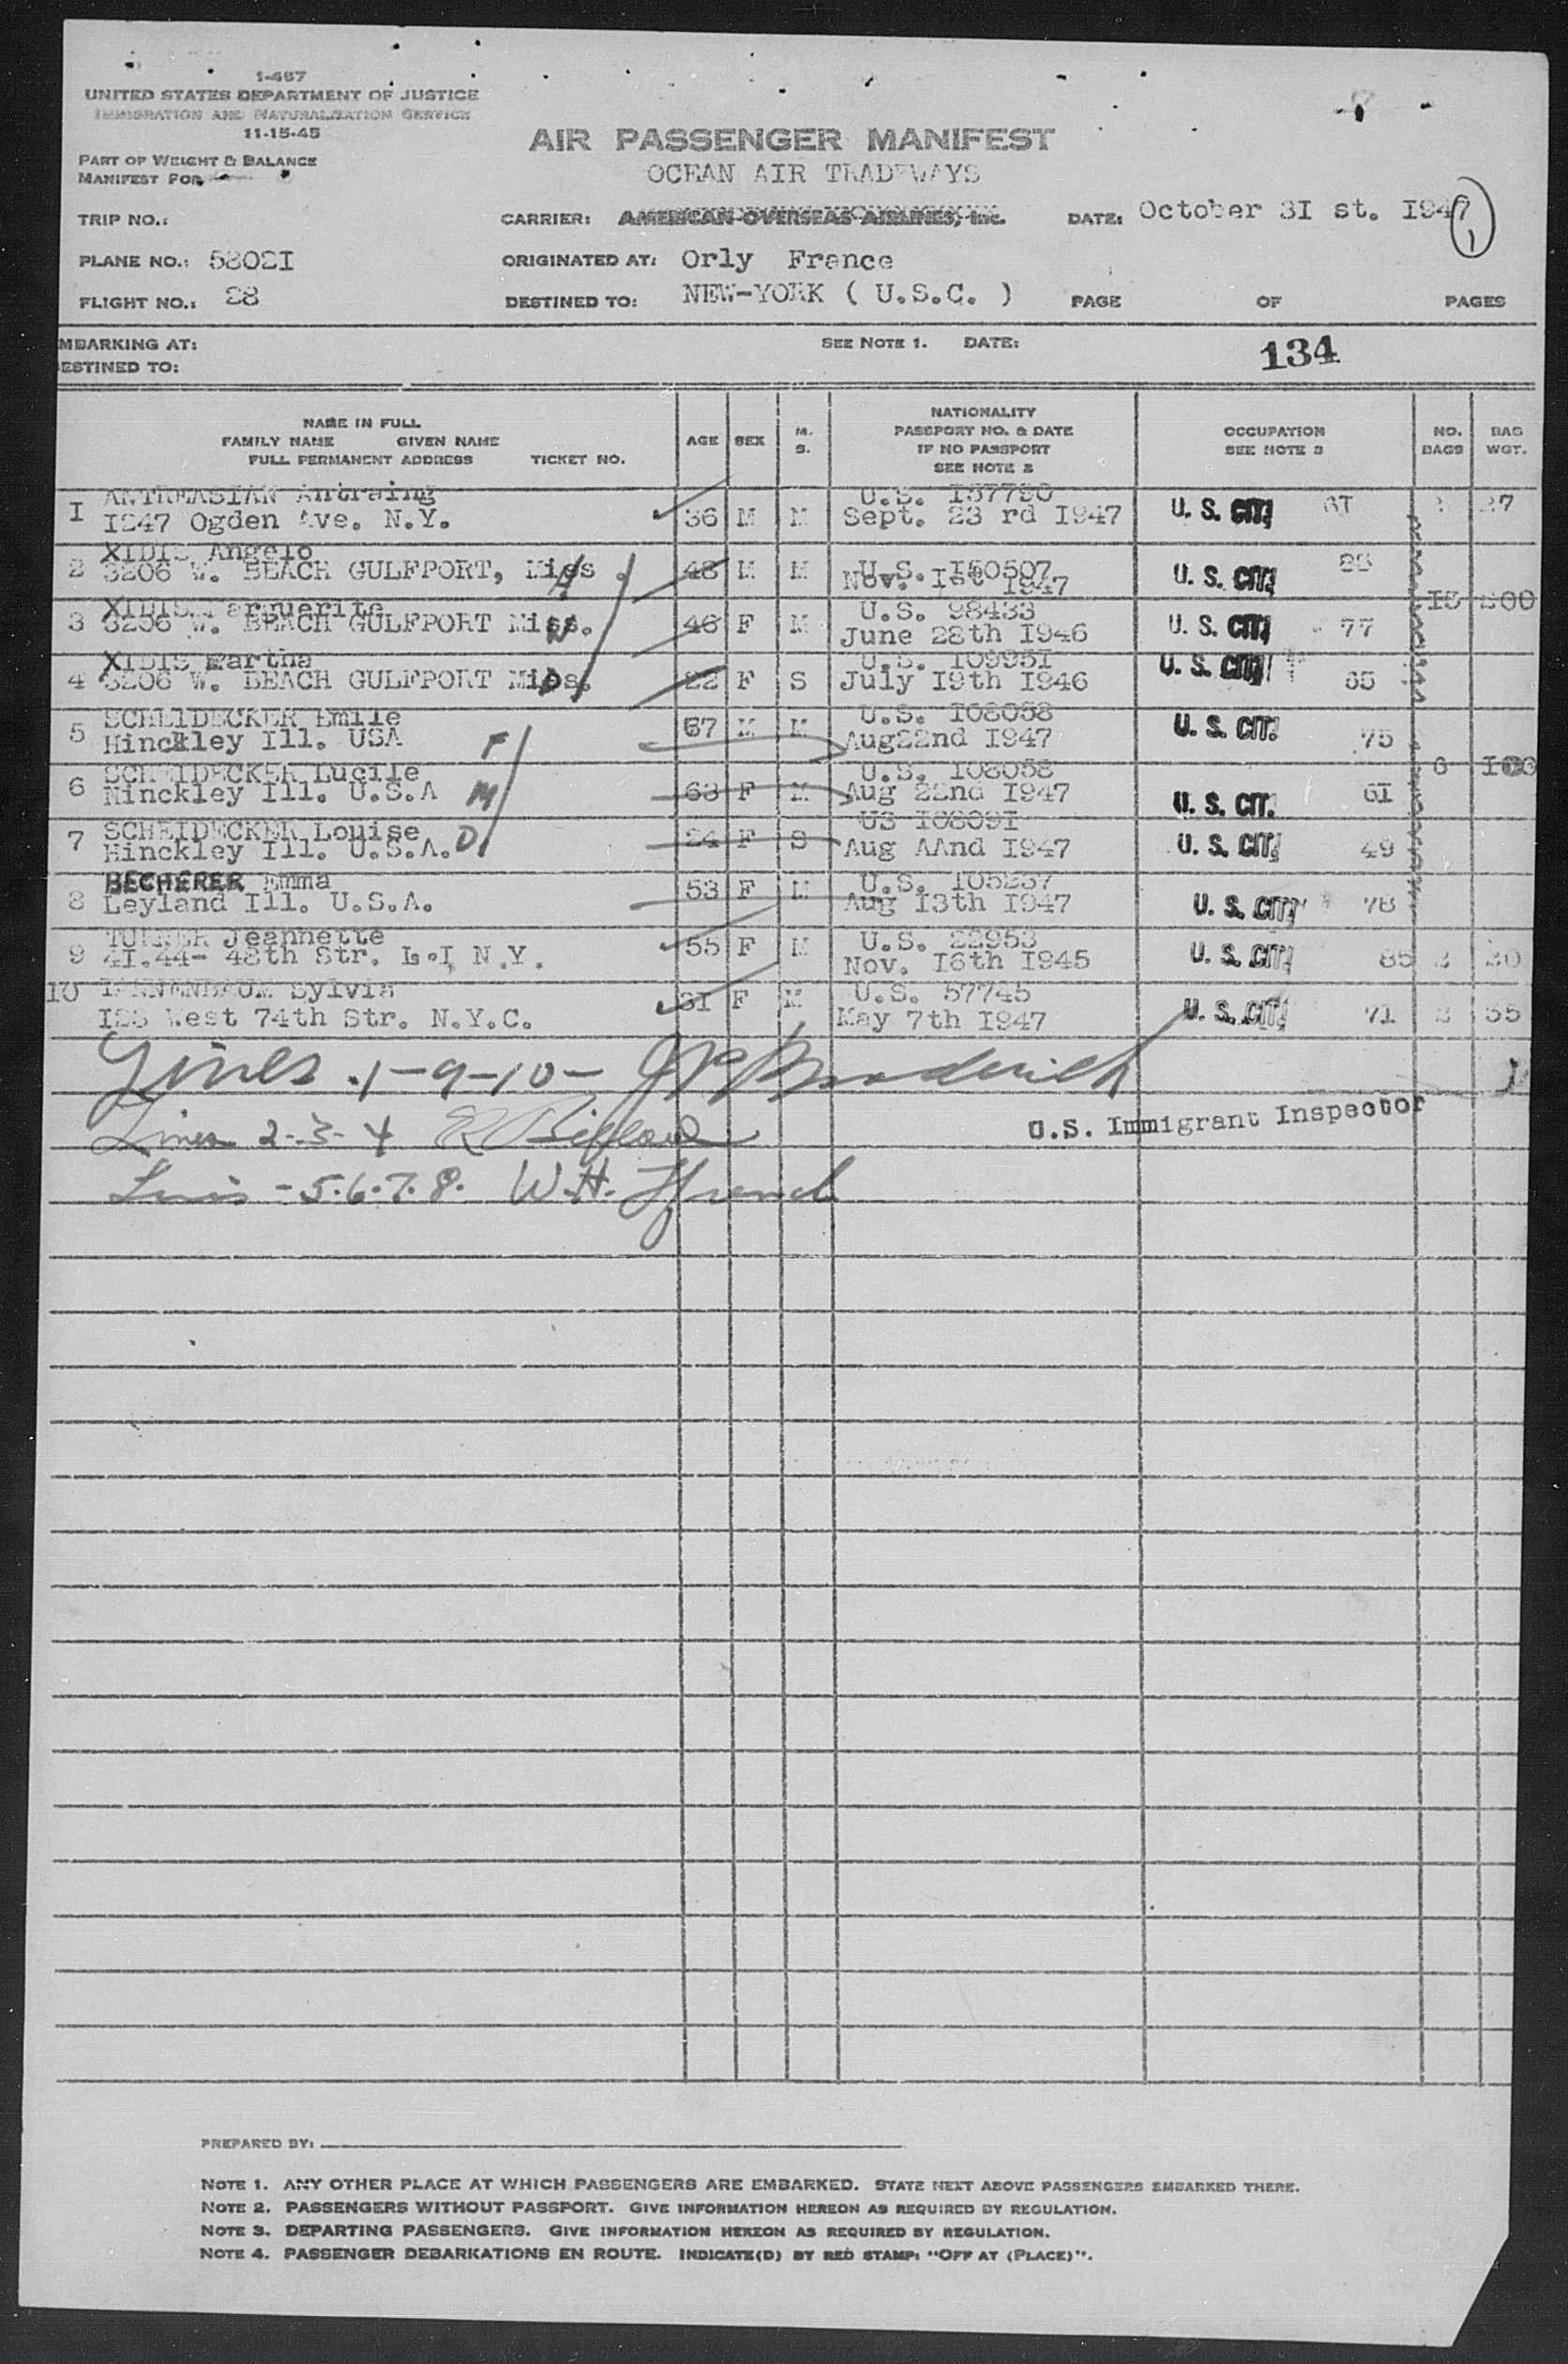 1-467
UNITED STATES DEPARTMENT OF JUSTICE
IMMIGRATION AND NATURALIZATION SERVICE
11-15-45
PART OF WEIGHT & BALANCE
MANIFEST FOR
AIR PASSENGER MANIFEST
OCEAN AIR TRADEWAYS
TRIP NO.:
CARRIER: AMERICAN OVERSEAS AIRLINES, Inc.
DATE: October 3I st. I947
1
PLANE NO.: 5302I
ORIGINATED AT: Orly France
FLIGHT NO.: 28
DESTINED TO: NEW-YORK ( U.S.C. )
PAGE OF PAGES
MBARKING AT:
SEE NOTE 1. DATE:
134
ESTINED TO:
NAME IN FULL
FAMILY NAME GIVEN NAME
FULL PERMANENT ADDRESS TICKET NO.
AGE
SEX
M.
S.
NATIONALITY
PASSPORT NO. & DATE
IF NO PASSPORT
SEE NOTE 2
OCCUPATION
SEE NOTE 3
NO.
BAGS
BAG
WGT.
ANTREASIAN Antraing U.S. I37790
I I247 Ogden Ave. N.Y. 36 M M Sept. 23 rd I947 U. S. CIT. 6I 27
XIDIS Angelo U.S. I50507
2 3206 W. BEACH GULFPORT, Miss. H 48 M M Nov. Ist I947 U. S. CIT.
XIDIS Marguerite U.S. 98433
3 3206 W. BEACH GULFPORT Miss. W 46 F M June 28th I946 U. S. CIT. 77 I5 200
XIDIS Martha U.S. I0995I
4 3206 W. BEACH GULFPORT Miss. D 22 F S July I9th I946 U. S. CIT. 65
SCHEIDECKER Emile U.S. I08058
5 Hinckley Ill. USA F 67 M M Aug22nd I947 U. S. CIT. 75
SCHEIDECKER Lucile U.S. I08058
6 Hinckley Ill. U.S.A M 63 F M Aug 22nd I947 U. S. CIT. 6I 6 I00
SCHEIDECKER Louise US I0809I
7 Hinckley Ill. U.S.A. D 24 F S Aug AAnd I947 U. S. CIT. 49
BECHERER Emma U.S. I05237
8 Leyland Ill. U.S.A. 53 F M Aug I3th I947 U. S. CIT. 78
TURNER Jeannette U.S. 22953
9 4I.44- 48th Str. L.I N.Y. 55 F M Nov. I6th I945 U. S. CIT. 85 2 30
10 TANNENBAUM Sylvia U.S. 57745
I25 West 74th Str. N.Y.C. 3I F M May 7th I947 U. S. CIT. 7I 2 35
Lines 1-9-10-
U.S. Immigrant Inspector
Lines 2-3-4
Lines - 5.6.7.8. W.H. French
PREPARED BY:
NOTE 1. ANY OTHER PLACE AT WHICH PASSENGERS ARE EMBARKED. STATE NEXT ABOVE PASSENGERS EMBARKED THERE.
NOTE 2. PASSENGERS WITHOUT PASSPORT. GIVE INFORMATION HEREON AS REQUIRED BY REGULATION.
NOTE 3. DEPARTING PASSENGERS. GIVE INFORMATION HEREON AS REQUIRED BY REGULATION.
NOTE 4. PASSENGER DEBARKATIONS EN ROUTE. INDICATE(D) BY RED STAMP: "OFF AT (PLACE)".